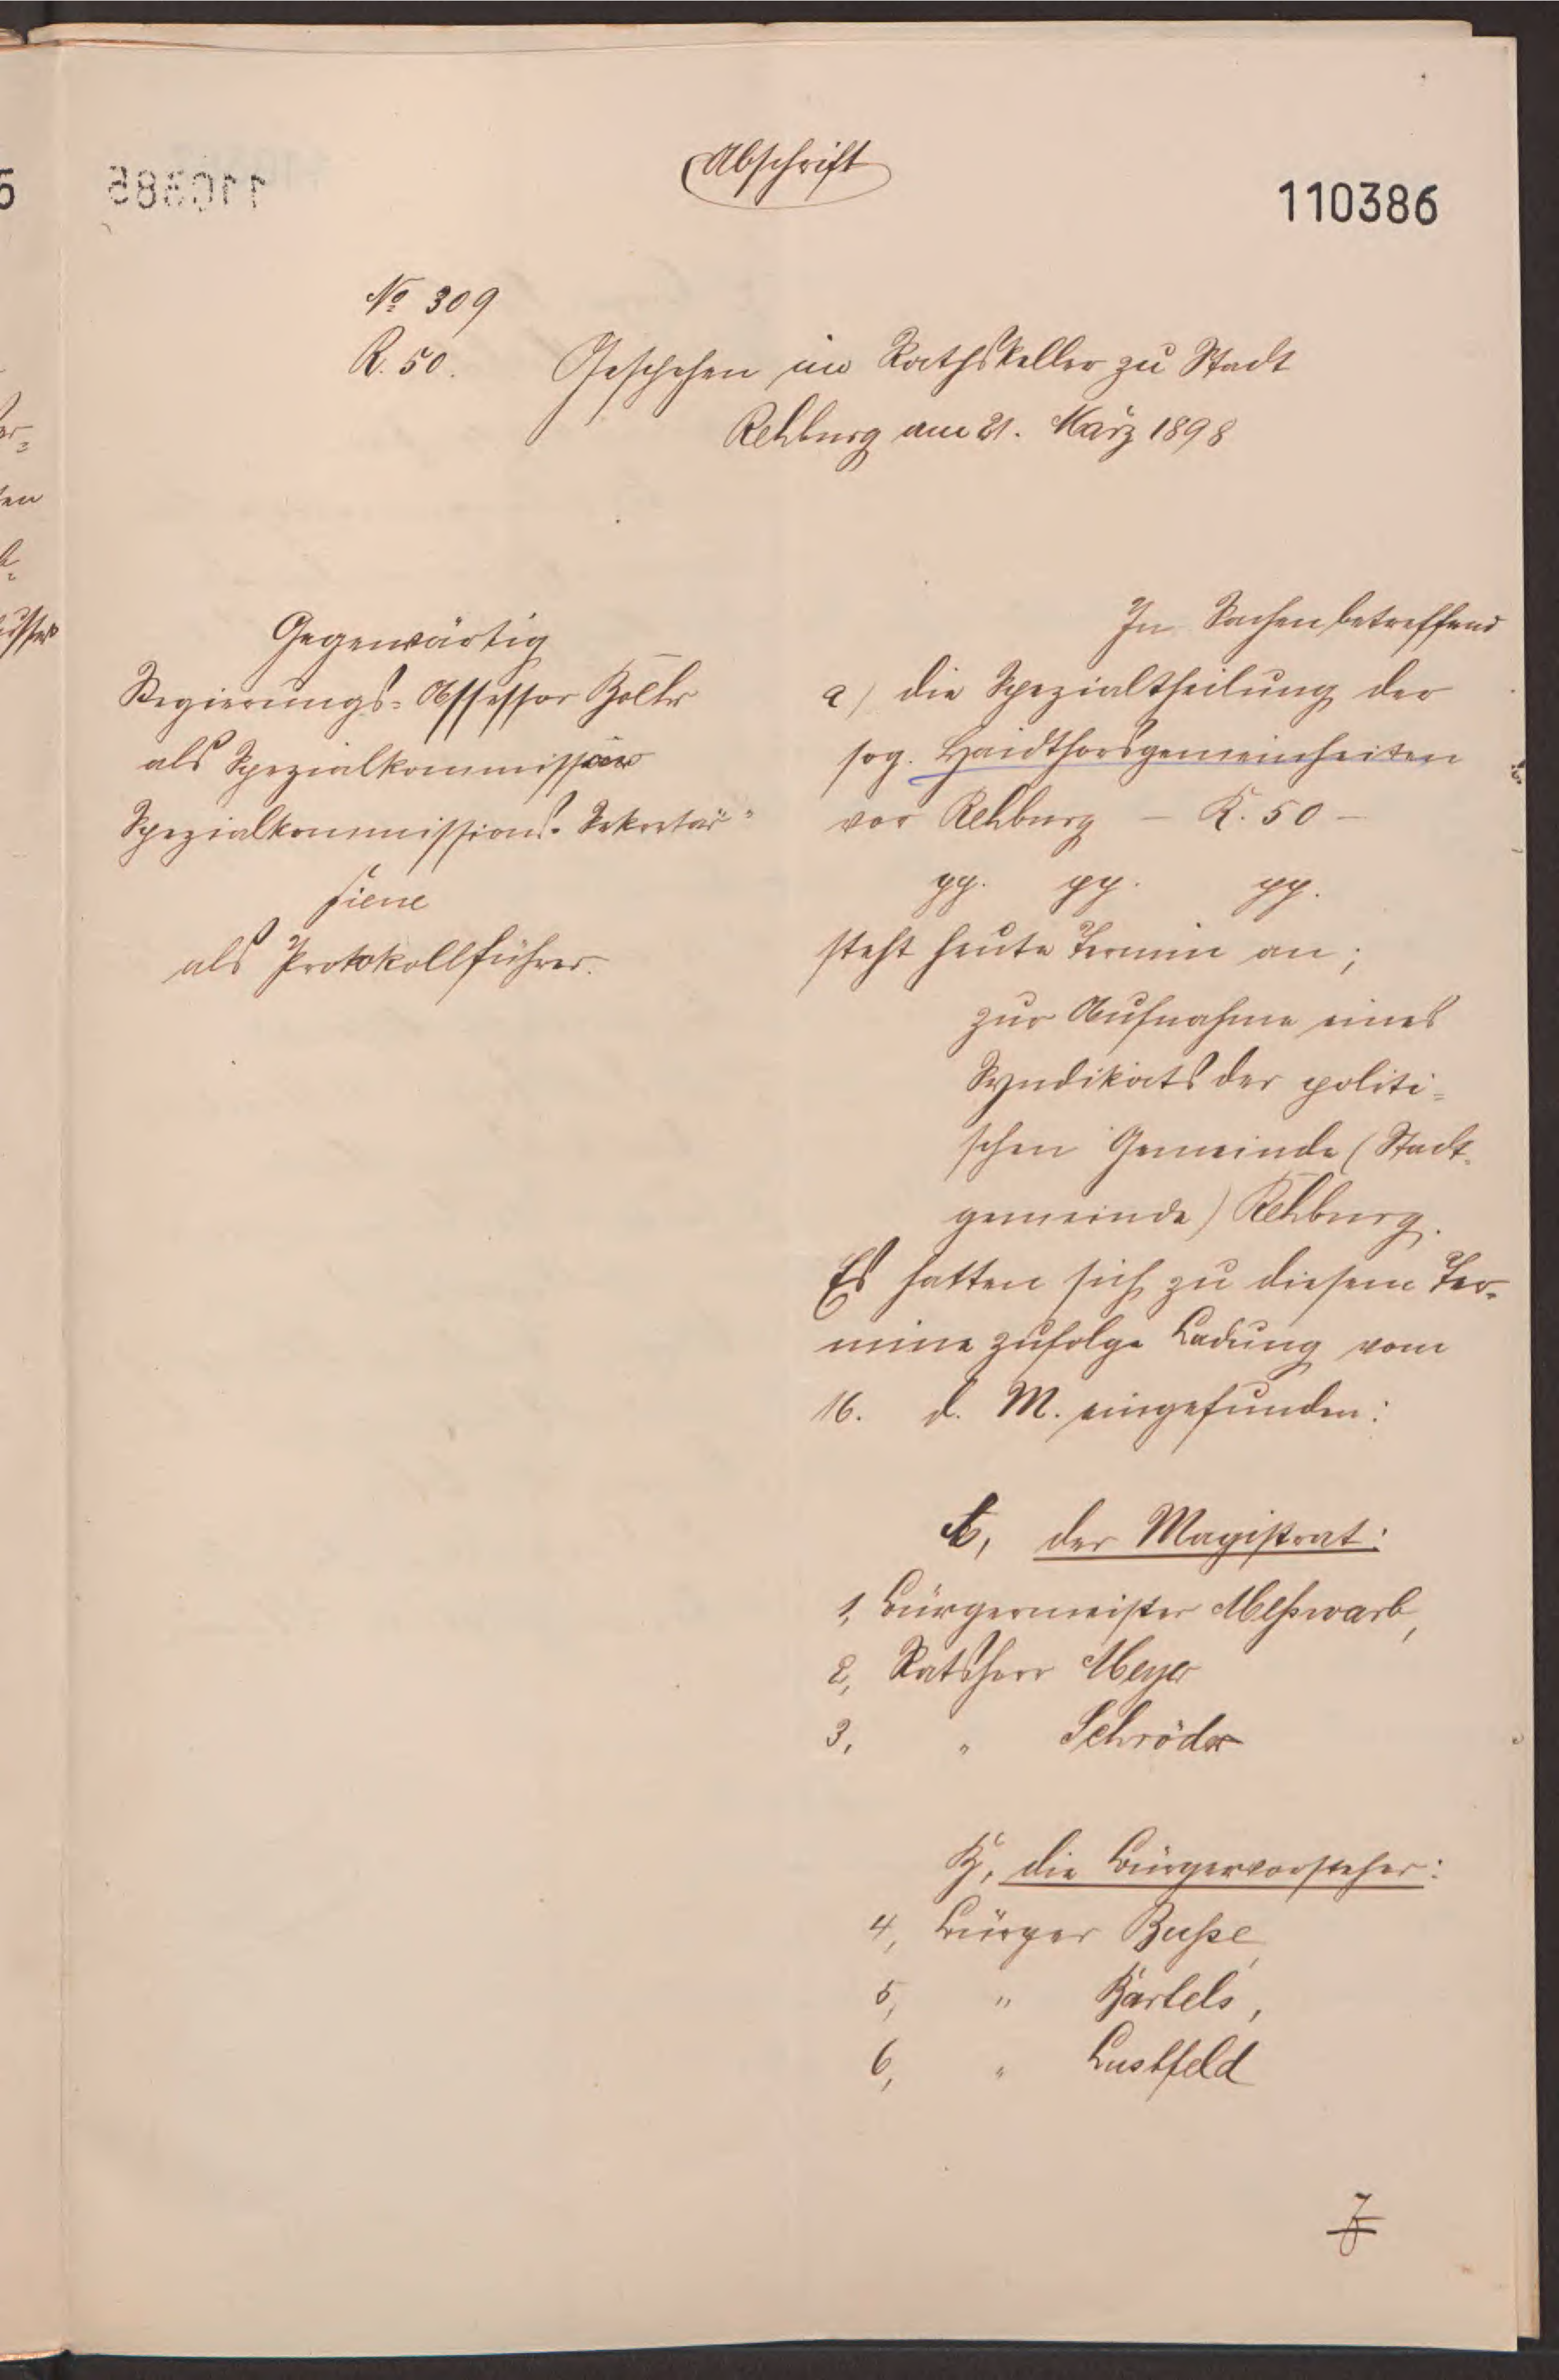 Abschrift
110386
№ 309
R. 50.
Geschehen im Rathskeller zu Stadt
Rehburg am 21. März 1898
Gegenwärtig
Regierungs-Assessor
als Spezialkommissar
Spezialkommissions-Sekretär
Fiene
als Protokollführer.
In Sachen betreffend
a) die Spezialtheilung der
sog. Haidthorsgemeinheiten
vor Rehburg – R. 50 –
pp. pp. pp.
steht heute Termin an;
zur Aufnahme eines
Syndikats der politi-
schen Gemeinde (Stadt-
gemeinde) Rehburg.
Es hatten sich zu diesem Ter-
mine zufolge Ladung vom
16. d. M. eingefunden:
A, der Magistrat:
1, Bürgermeister Meßwarb,
2, Ratsherr Meyer
3, " Schröder
B, die Bürgervorsteher:
4, Bürger Buße,
5, " Bartels,
6, " Lustfeld
7